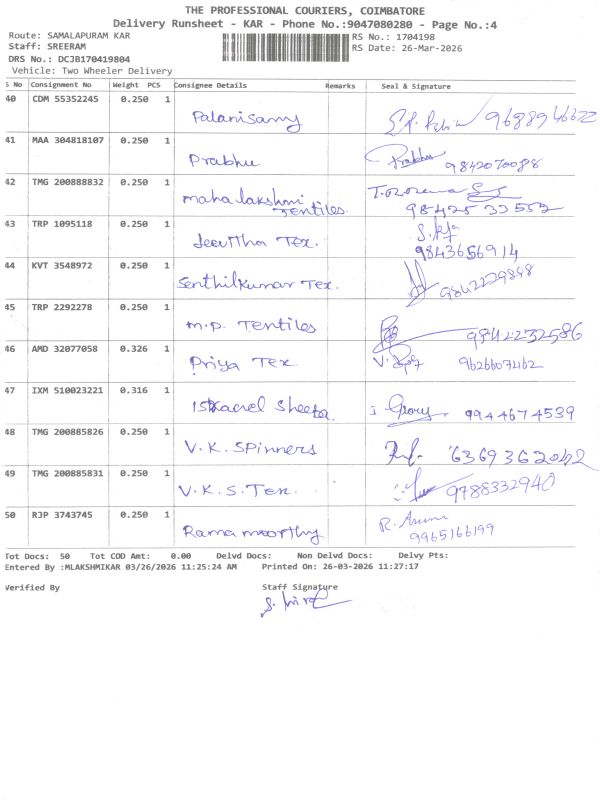 THE PROFESSIONAL COURIERS, COIMBATORE
Delivery Runsheet - KAR - Phone No.:9047080280 - Page No.:4
Route: SAMALAPURAM KAR RS No.: 1704198
Staff: SREERAM RS Date: 26-Mar-2026
DRS No.: DCJB170419804
Vehicle: Two Wheeler Delivery
S No Consignment No Weight PCS Consignee Details Remarks Seal & Signature
40 CDM 55352245 0.250 1 Palanisamy
41 MAA 304818107 0.250 1 Prabhu Prabhu 9842070088
42 TMG 200888832 0.250 1 mahalakshmi Tentiles.
43 TRP 1095118 0.250 1 Jeevitha Tex. 9843656914
44 KVT 3548972 0.250 1 Senthilkumar Tex.
45 TRP 2292278 0.250 1 m.p. Tentiles 9842232586
46 AMD 32077058 0.326 1 Priya Tex 9626607462
47 IXM 510023221 0.316 1 9944674539
48 TMG 200885826 0.250 1 V.K. Spinners 6369362042
49 TMG 200885831 0.250 1 V.K.S. Tex. 9788332940
50 RJP 3743745 0.250 1 Ramamoorthy 9965166199
Tot Docs: 50 Tot COD Amt: 0.00 Delvd Docs: Non Delvd Docs: Delvy Pts:
Entered By :MLAKSHMIKAR 03/26/2026 11:25:24 AM Printed On: 26-03-2026 11:27:17
Verified By Staff Signature